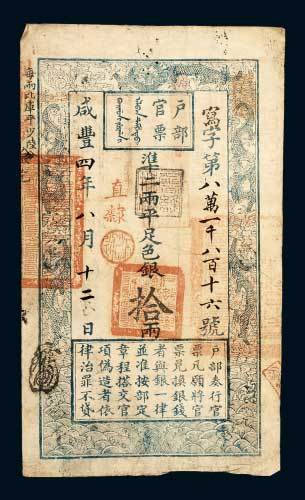 户部
官票
寫字第八萬一千八百十六號
準二兩平足色銀拾兩
直隸
咸豐四年八月十二日
户部奏行官
票凡願將官
票兑換銀錢
者與銀一律
並准按部定
章程搭交官
項偽造者依
律治罪不貸
每兩比庫平少